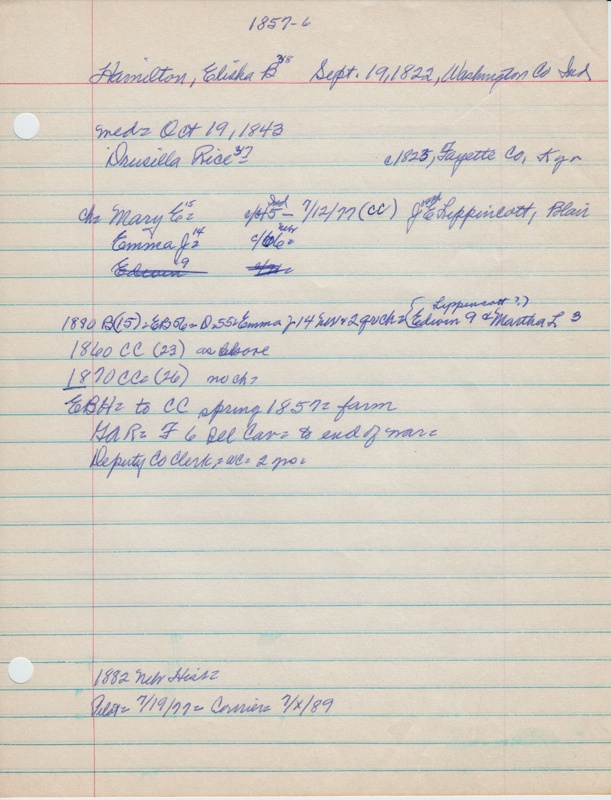 1857-6
Hamilton, Elisha B 38 Sept. 19, 1822, Washington Co Ind
med= Oct 19, 1843
Drusilla Rice 37= c1823, Fayette Co, Ky=
ch= Mary E= 15 c/45 Ind – 7/12/77 (CC) J E Lippincott, Blair
Emma J= 14 c/66= Nebr
Edwin 9 c/71=
1880 B(15)= EB 56= D 55= Emma J 14 Nebr & 2 grch= (Edwin 9 & Martha L 3 Lippencott?)
1860 CC (23) as above
1870 CC= (26) no ch=
EBH= to CC spring 1857= farm
GAR= F 6 Del Cav= to end of war=
Deputy Co Clerk, WC= 2 mo=
1882 Nebr Hist=
Pilot= 7/19/77= Courier= 7/x/89